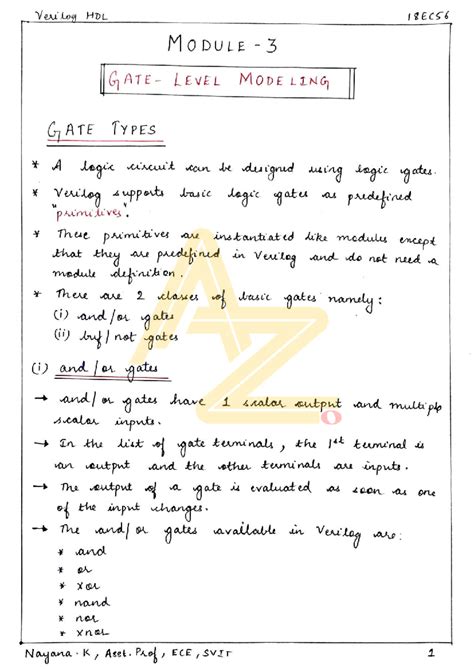 Verilog HDL 18EC56
MODULE - 3
GATE- LEVEL MODELING
GATE TYPES
* A logic circuit can be designed using logic gates.
* Verilog supports basic logic gates as predefined
"primitives".
* These primitives are instantiated like modules except
that they are predefined in Verilog and do not need a
module definition.
* There are 2 classes of basic gates namely:
(i) and/or gates
(ii) buf/not gates
(i) and/or gates
→ and/or gates have 1 scalar output and multiple
scalar inputs.
→ In the list of gate terminals, the 1st terminal is
an output and the other terminals are inputs.
→ The output of a gate is evaluated as soon as one
of the input changes.
→ The and/or gates available in Verilog are:
* and
* or
* xor
* nand
* nor
* xnor
AZ
Nayana.K, Asst.Prof, ECE, SVIT 1